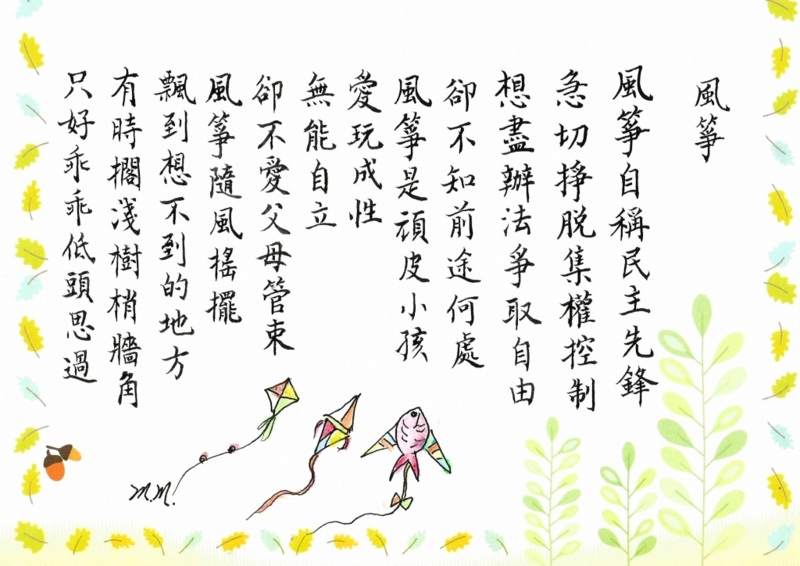 風箏
風箏自稱民主先鋒
急切掙脫集權控制
想盡辦法爭取自由
卻不知前途何處
風箏是頑皮小孩
愛玩成性
無能自立
卻不愛父母管束
風箏隨風搖擺
飄到想不到的地方
有時擱淺樹梢牆角
只好乖乖低頭思過
M.M.